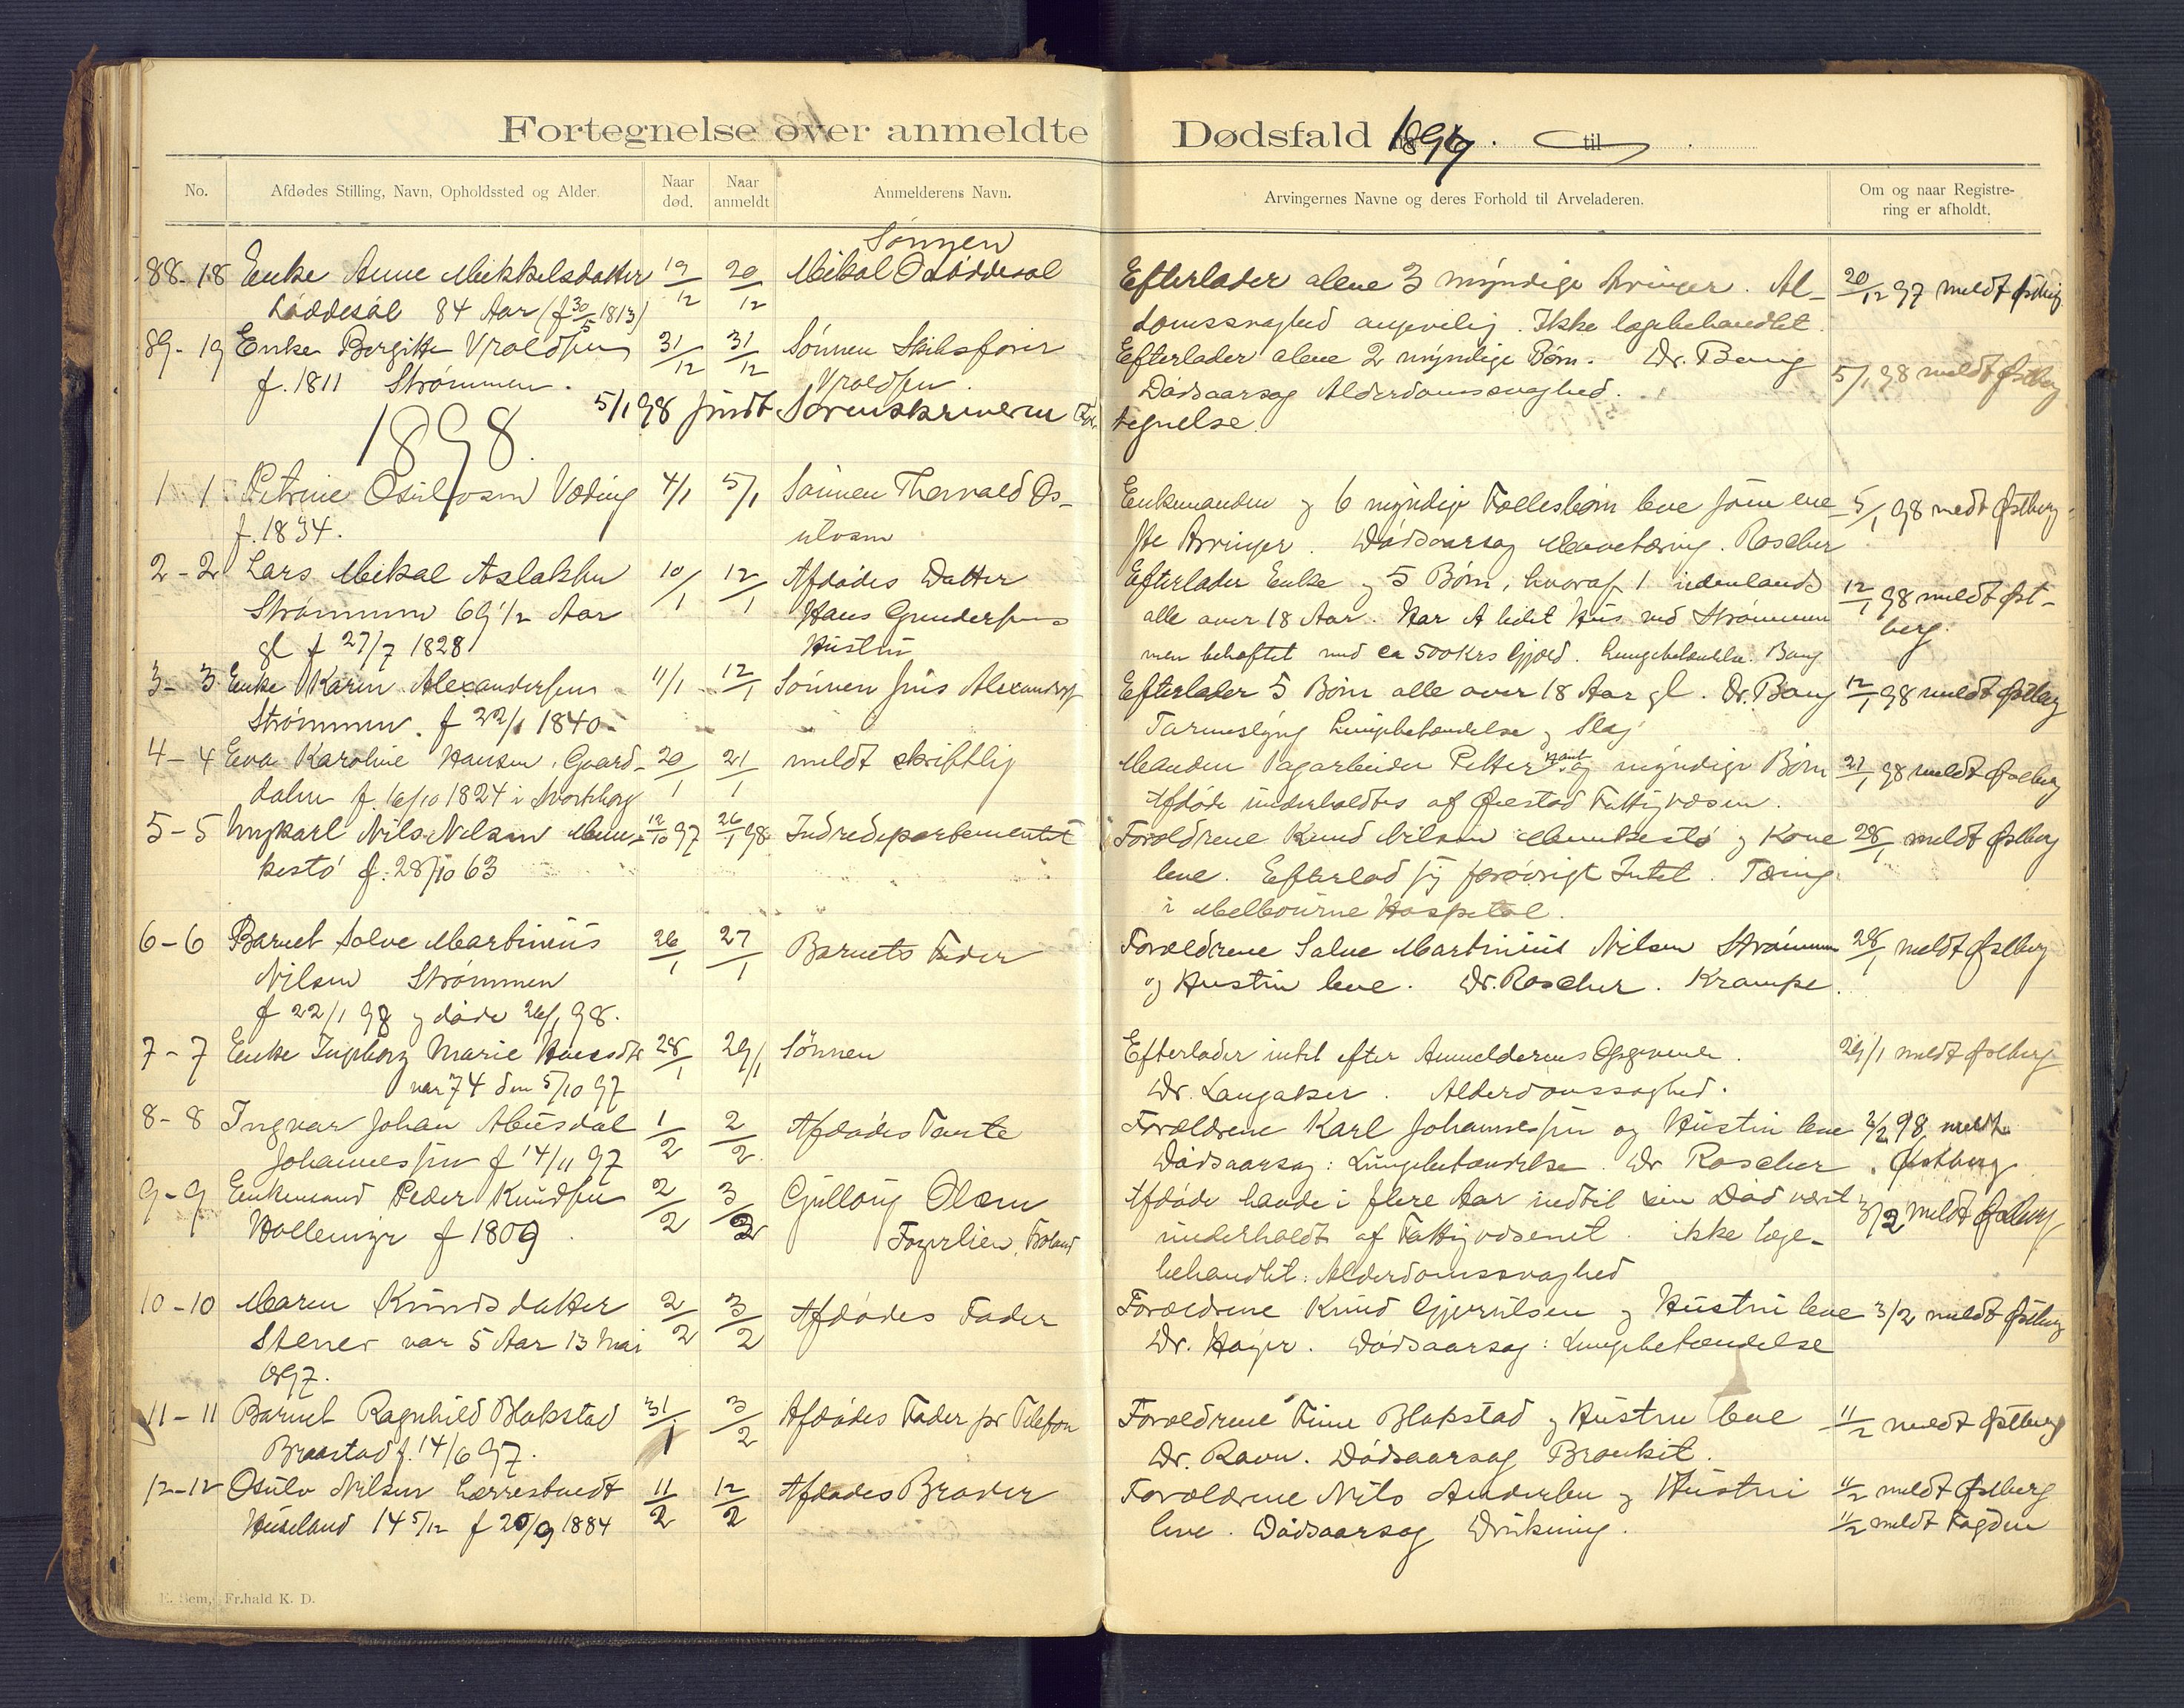 Fortegnelse over anmeldte Dødsfald 1897. til
No.
Afdødes Stilling, Navn, Opholdssted og Alder.
Naar død.
Naar anmeldt
Anmelderens Navn.
Arvingernes Navne og deres Forhold til Arveladeren.
Om og naar Registre-
ring er afholdt.
Sønnen
88-18 Enke Anne Mikkelsdatter 19/12 20/12 Mikal O Løddesøl Efterlader alene 3 myndige Arvinger. Al- 20/12 97 meldt Østberg
Løddesøl 84 Aar (f 30/5 1813) domssvaghed angivelig. Ikke lægebehandlet.
89-19 Enke Bergitte Vroldsen 31/12 31/12 Sønnen Skibsfører Efterlader alene 2 myndige Børn. Dr. Bang 5/1 98 meldt Østberg
f. 1811 Strømmen. Vroldsen. Dødsaarsag Alderdomssvaghed.
5/1 98 sendt Sorenskriveren For- tegnelse.
1898.
1-1 Petrine Osulvsen Væding 4/1 5/1 Sønnen Thorvald Os- Enkemanden og 6 myndige Fællesbørn leve som ene- 5/1 98 meldt Østberg
f. 1834. ulvsen ste Arvinger. Dødsaarsag Mavetæring. Roscher
2-2 Lars Mikal Aslaksen 10/1 12/1 Afdødes Datter Efterlader Enke og 5 Børn, hvoraf 1 udenlands 12/1 98 meldt Øst-
Strømmen 69 1/2 Aar Hans Gundersens alle over 18 Aar. Har et lidet Hus ved Strømmen berg.
gl f 27/7 1828 Hustru men behæftet med ca 500 Krs Gjæld. Lungebetændelse. Bang
3-3 Enke Karen Alexandersen 11/1 12/1 Sønnen Jens Alexanders Efterlader 5 Børn alle over 18 Aar gl. Dr. Bang 12/1 98 meldt Østberg
Strømmen. f 22/1 1840. Tarmeslyng Lungebetændelse og Slag
4-4 Eva Karoline Hansen, Gaard- 20/1 21/1 meldt skriftlig Manden Dagarbeider Petter samt og myndige Børn 21/1 98 meldt Østberg
dalen f. 16/10 1824 i Øiestad Afdøde underholdtes af Øiestad Fattigvæsen.
5-5 Ungkarl Nils Nilsen Mun- 12/10 97 26/1 98 Indredepartementet Forældrene Knud Nilsen Munkestø og Kone 28/1 meldt Østberg
kestø f. 28/10 63 leve. Efterlod sig forøvrigt Intet. Tæring
i Melbourne Hospital.
6-6 Barnet Salve Martinius 26/1 27/1 Barnets Fader Forældrene Salve Martinius Nilsen Strømmen 28/1 meldt Østberg
Nilsen Strømmen og Hustru leve. Dr. Roscher. Krampe.
f 22/1 98 og døde 26/1 98.
7-7 Enke Ingeborg Marie Hansdtr 28/1 29/1 Sønnen Efterlader intet efter Anmelderens Opgivende. 29/1 meldt Østberg
var 74 den 5/10 97 Dr. Langaker. Alderdomssvaghed.
8-8 Ingvar Johan Abusdal 1/2 2/2 Afdødes Tante Forældrene Karl Johannessen og Hustru leve 2/2 98 meldt
Johannessen f 14/11 97 Dødsaarsag: Lungebetændelse. Dr Roscher. Østberg
9-9 Enkemand Peder Knudsen 2/2 3/2 Gjullaug Olsen Afdøde havde i flere Aar indtil sin Død vært 3/2 meldt Østberg
f 1809 Froland underholdt af Fattigvæsenet. ikke læge-
behandlet: Alderdomssvaghed
10-10 Maren Knudsdatter 2/2 3/2 Afdødes Fader Forældrene Knud Gjerulsen og Hustru leve 3/2 meldt Østberg
Stener var 5 Aar 13 Mai Dr. Høyer. Dødsaarsag: Lungebetændelse
1897.
11-11 Barnet Ragnhild Blakstad 31/1 3/2 Afdødes Fader pr Telefon Forældrene Blakstad og Hustru leve 11/2 meldt Østberg
Braastad f. 14/6 97. Dr. Ravn. Dødsaarsag Bronkit.
12-12 Osulv Nilsen Lærrestvedt 11/2 12/2 Afdødes Broder Forældrene Nils Andersen og Hustru 11/2 meldt Østberg
Huseland 14 5/12 f 20/9 1884 leve. Dødsaarsag Drukning. 11/2 meldt Fogden
E. Sem, Fr.hald K. D.